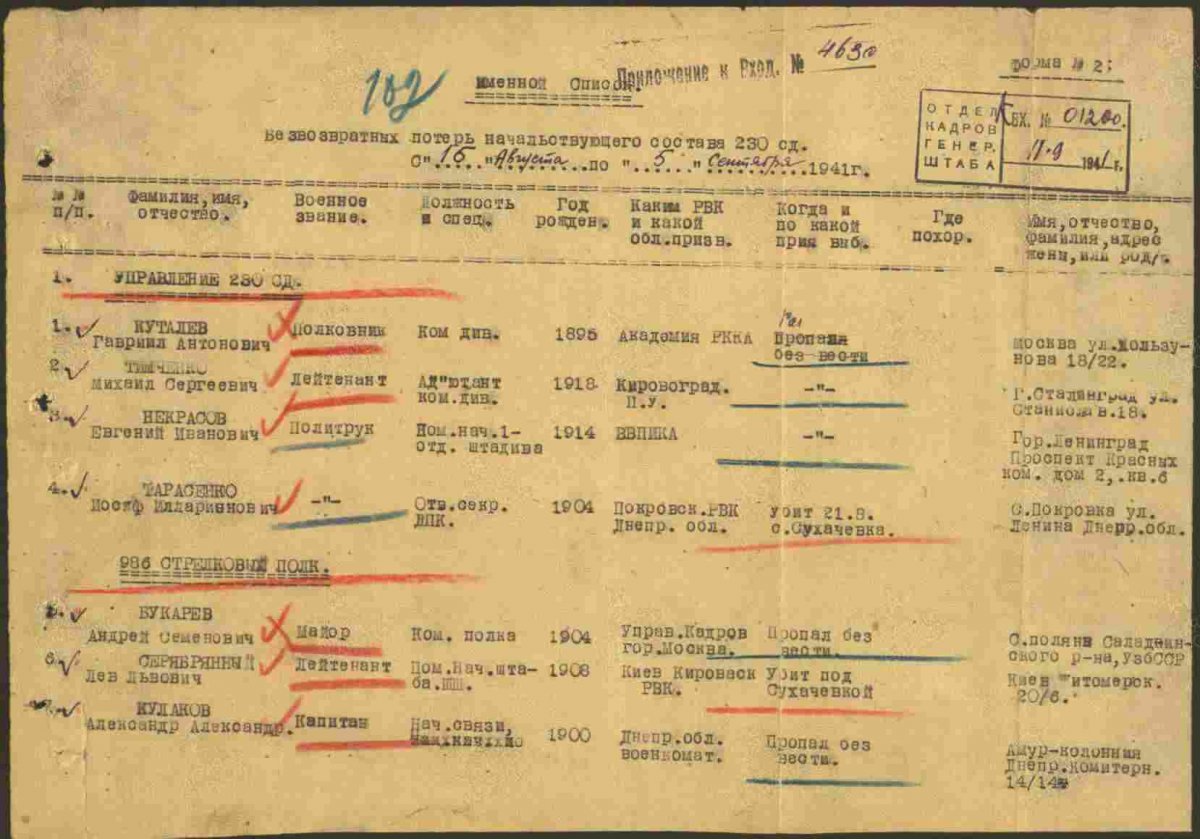 102
Именной Список.
Приложение к Вход. № 4630
Форма № 2;
ОТДЕЛ
КАДРОВ
ГЕНЕР.
ШТАБА
ВХ. № 01200.
11.9 1941 г.
Безвозвратных потерь начальствующего состава 230 сд.
С "15" Августа по "5" Сентября 1941г.
№ № п/п. Фамилия,имя, отчество. Военное звание. Должность и спец. Год рожден. Каким РВК и какой обл.призв. Когда и по какой прич выб. Где похор. Имя,отчество, фамилия,адрес жены,или род/.
1. УПРАВЛЕНИЕ 230 СД.
1. КУТАЛЕВ Полковник Ком див. 1895 Академия РККА Пропала
Гавриил Антонович без вести Москва ул.Кользу-
нова 18/22.
2. ТИМЧЕНКО Лейтенант Ад"ютант 1918 Кировоград. -"- Г.Сталинград ул.
Михаил Сергеевич ком.див. П.У. Станислав.18.
3. НЕКРАСОВ Политрук Пом.нач.1- 1914 ВВПИКА -"- Гор.Ленинград
Евгений Иванович отд. штадива Проспект Красных
ком. дом 2,.кв.6
4. ТАРАСЕНКО -"- Отв.секр. 1904 Покровск.РВК Убит 21.8. С.Покровка ул.
Иосиф Илларионович ДПК. Днепр. обл. с.Сухачевка. Ленина Днепр.обл.
986 СТРЕЛКОВЫЙ ПОЛК.
5. БУКАРЕВ
Андрей Семенович Майор Ком. полка 1904 Управ.Кадров Пропал без
гор.Москва. вести. С.поляна Саладвин-
ского р-на,УзбССР
6. СЕРЯБРЯННЫЙ Лейтенант Пом.Нач.шта- 1908 Киев Кировск Убит под Киев Житомерск.
Лев Львович ба.ШШ. РВК. Сухачевкой 20/6.
КУЛАКОВ Капитан Нач.связи, 1900 Днепр.обл. Пропал без Амур-колонния
Александр Александр. военкомат. вести. Днепр.комитерн.
14/14